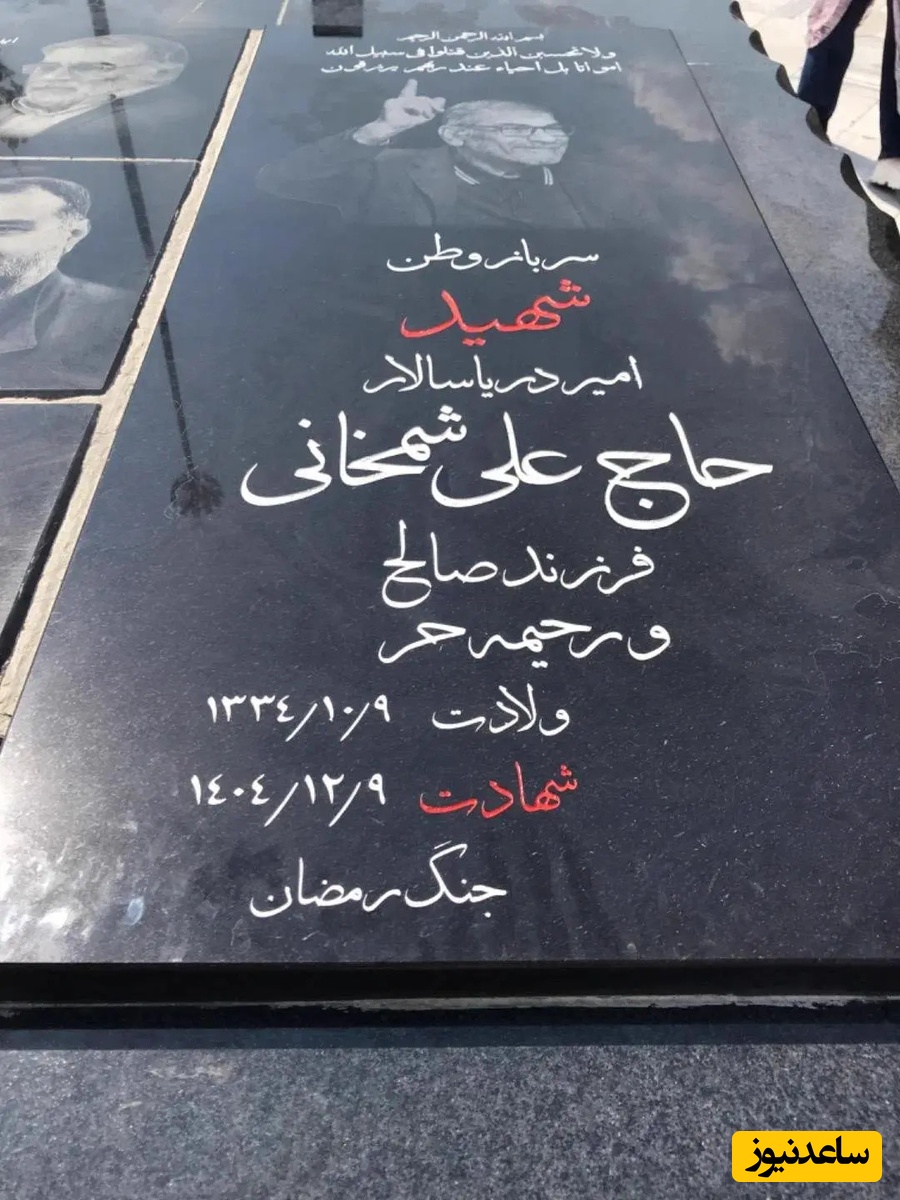 بسم الله الرحمن الرحیم
ولا تحسبن الذین قتلوا فی سبیل الله
امواتا بل احیاء عند ربهم یرزقون
سرباز وطن
شهید
امیر دریاسالار
حاج علی شمخانی
فرزند صالح
و رحیمه حر
ولادت ۱۳۳٤/۱۰/۹
شهادت ۱٤۰٤/۱۲/۹
جنگ رمضان
ساعدنیوز